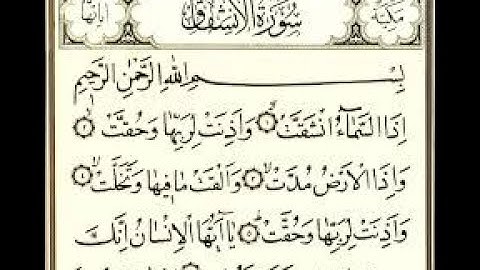 سُورَةُ الْاِنْشِقَاقِ
مَكِّيَّة
اٰيَاتُهَا
بِسْمِ اللّٰهِ الرَّحْمٰنِ الرَّحِيمِ
اِذَا السَّمَٓاءُ انْشَقَّتْۙ ﴿١﴾ وَاَذِنَتْ لِرَبِّهَا وَحُقَّتْۙ ﴿٢﴾
وَاِذَا الْاَرْضُ مُدَّتْۙ ﴿٣﴾ وَاَلْقَتْ مَا فِيهَا وَتَخَلَّتْۙ ﴿٤﴾
وَاَذِنَتْ لِرَبِّهَا وَحُقَّتْۜ ﴿٥﴾ يَٓا اَيُّهَا الْاِنْسَانُ اِنَّكَ